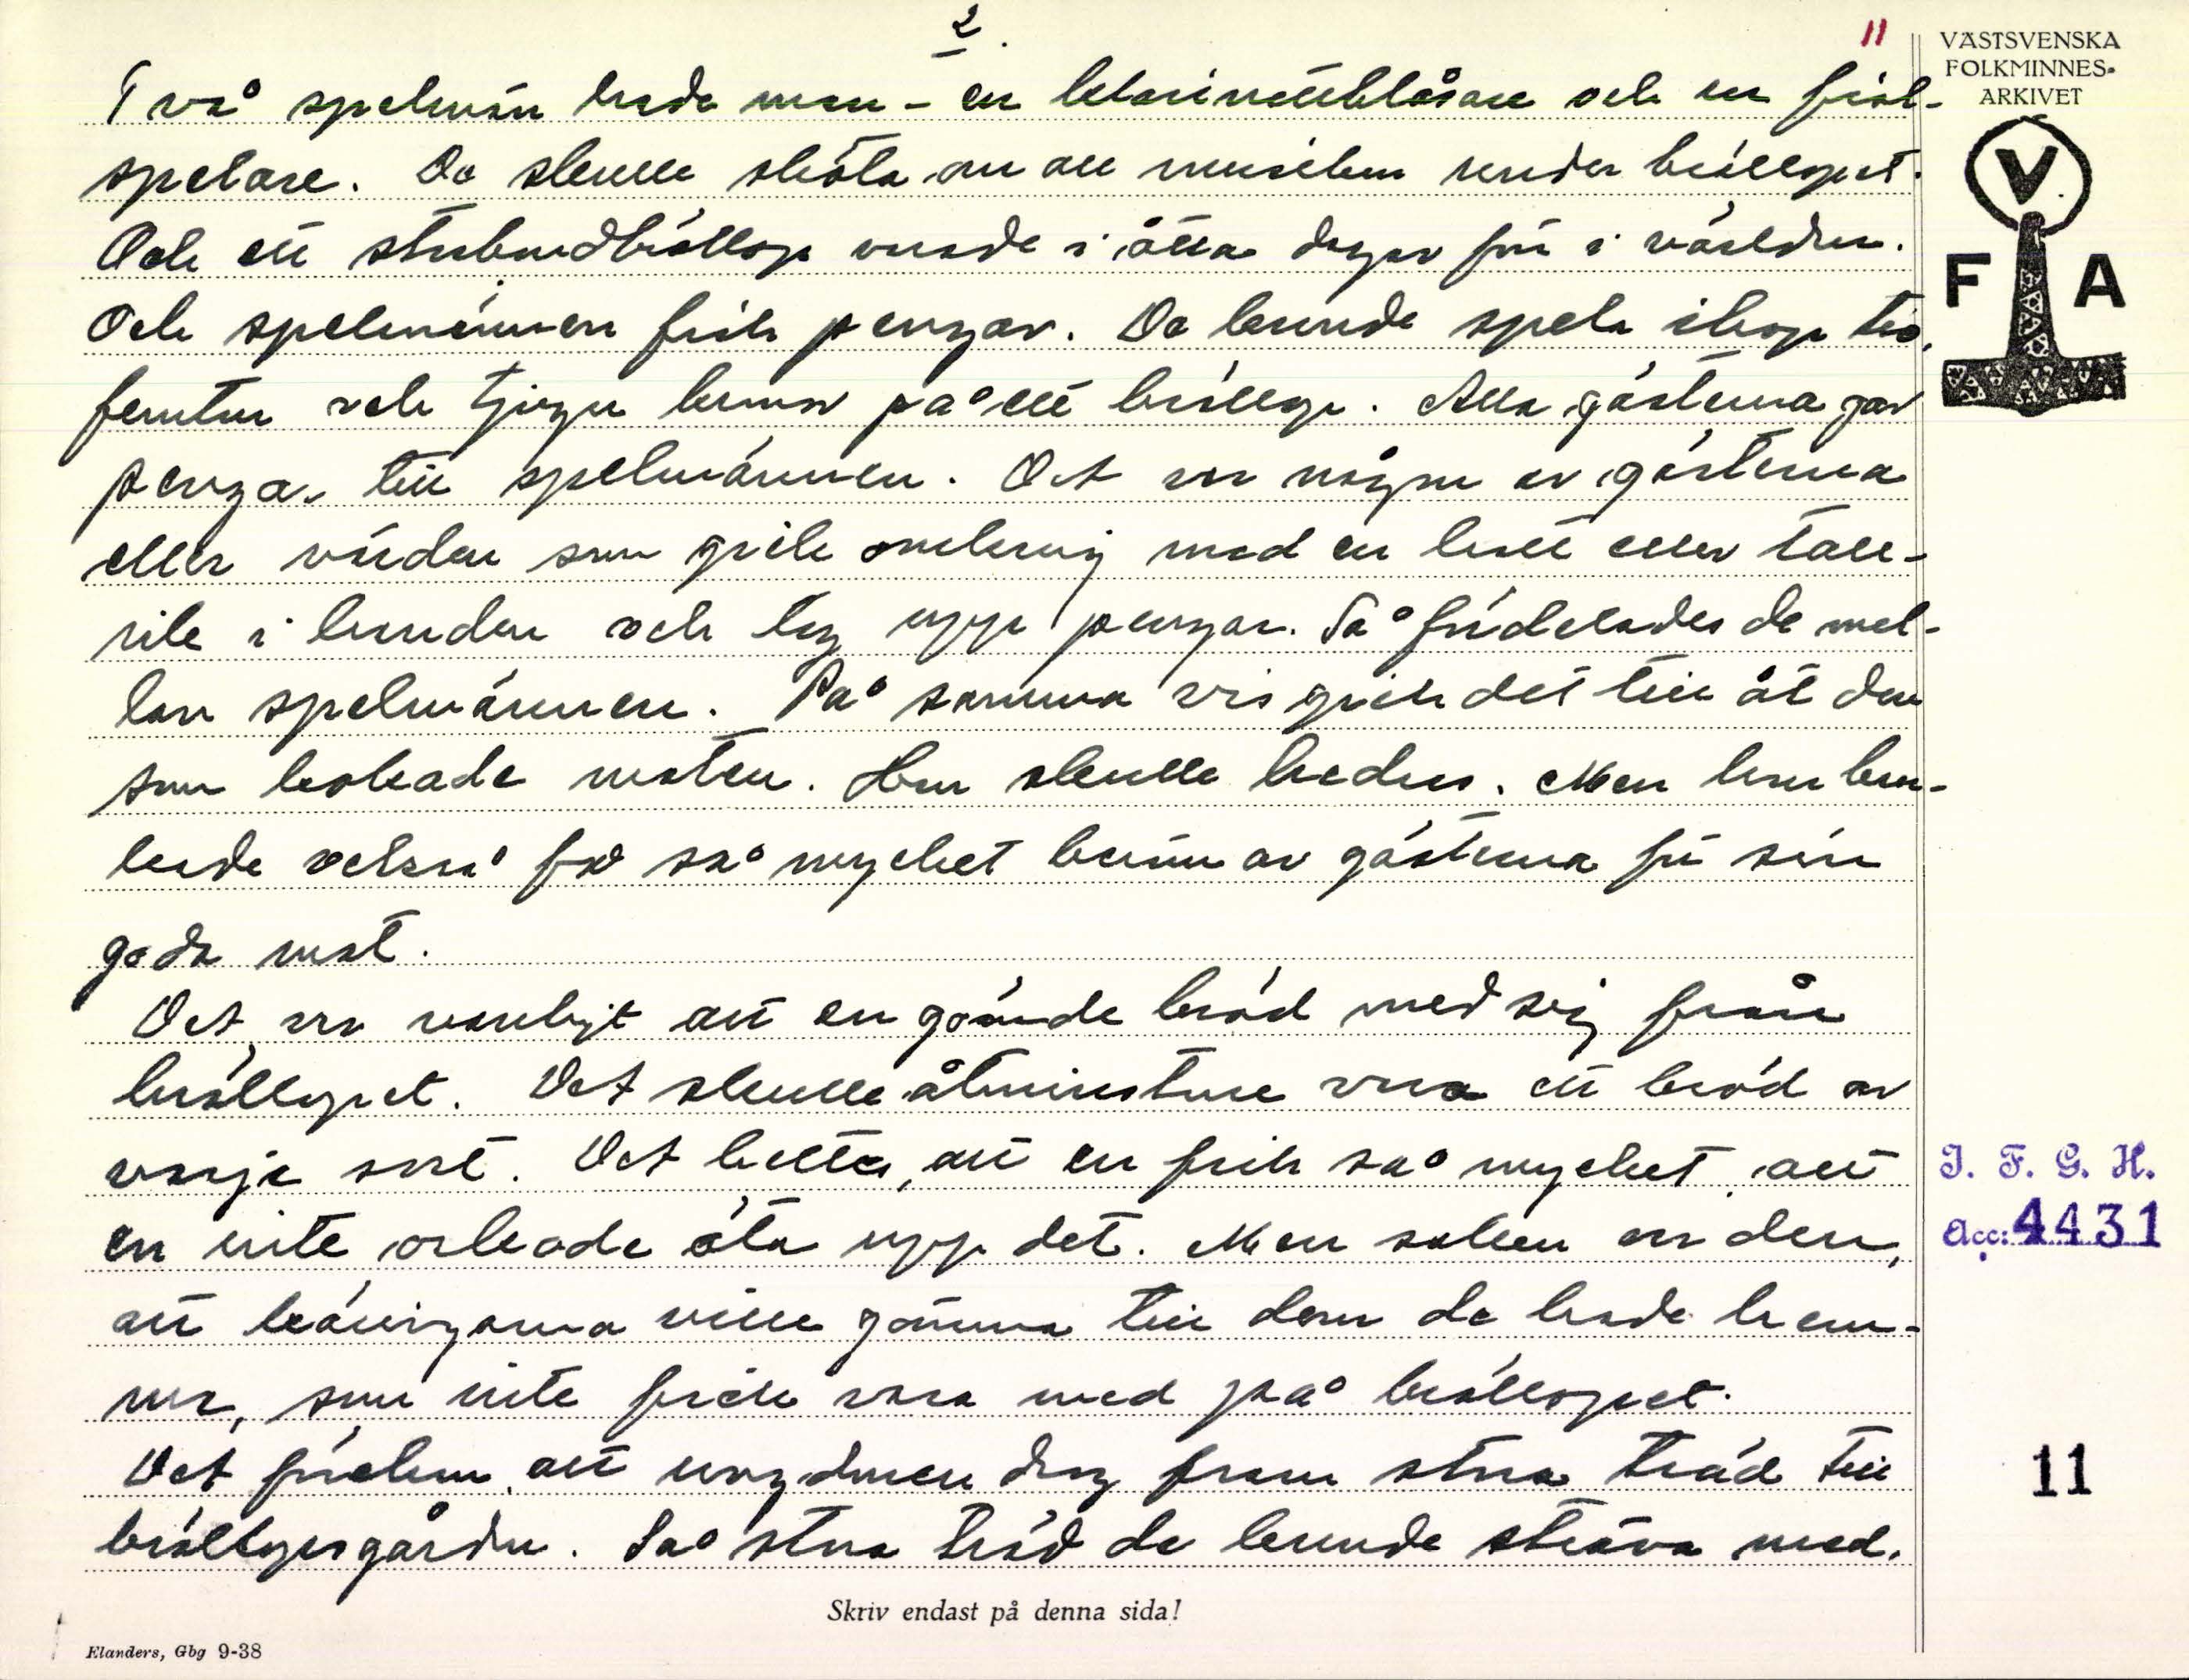 2.
11
VÄSTSVENSKA
FOLKMINNES-
ARKIVET
V.
F A
Två spelmän hade man - en klarinettblåsare och en fiol-
spelare. De skulle sköta om all musiken under bröllopet.
Och ett storbondbröllop varade i åtta dagar för i världen.
Och spelmännen fick pengar. De kunde spela ihop tio,
femton och tjugu kronor på ett bröllop. Alla gästerna gav
pengar till spelmännen. Det var någon av gästerna
eller värden som gick omkring med en hatt eller tall-
rik i handen och tog upp pengar. Så fördelades de mel-
lan spelmännen. På samma vis gick det till åt den
som kokade maten. Hon skulle hedras. Men hon bru-
kade också få så mycket beröm av gästerna för sin
goda mat.
Det var vanligt att en gömde bröd med sig från
bröllopet. Det skulle åtminstone vara ett bröd av
varje sort. Det hette, att en fick så mycket, att
en inte orkade äta upp det. Men saken var den,
att käringarna ville gömma till dem de hade hem-
ma, som inte fick vara med på bröllopet.
Det förekom, att ungdomen drog fram stora träd till
bröllopsgården. Så stora träd de kunde sträva med.
J. F. G. H.
Acc: 4431
11
Skriv endast på denna sida!
Elanders, Gbg 9-38